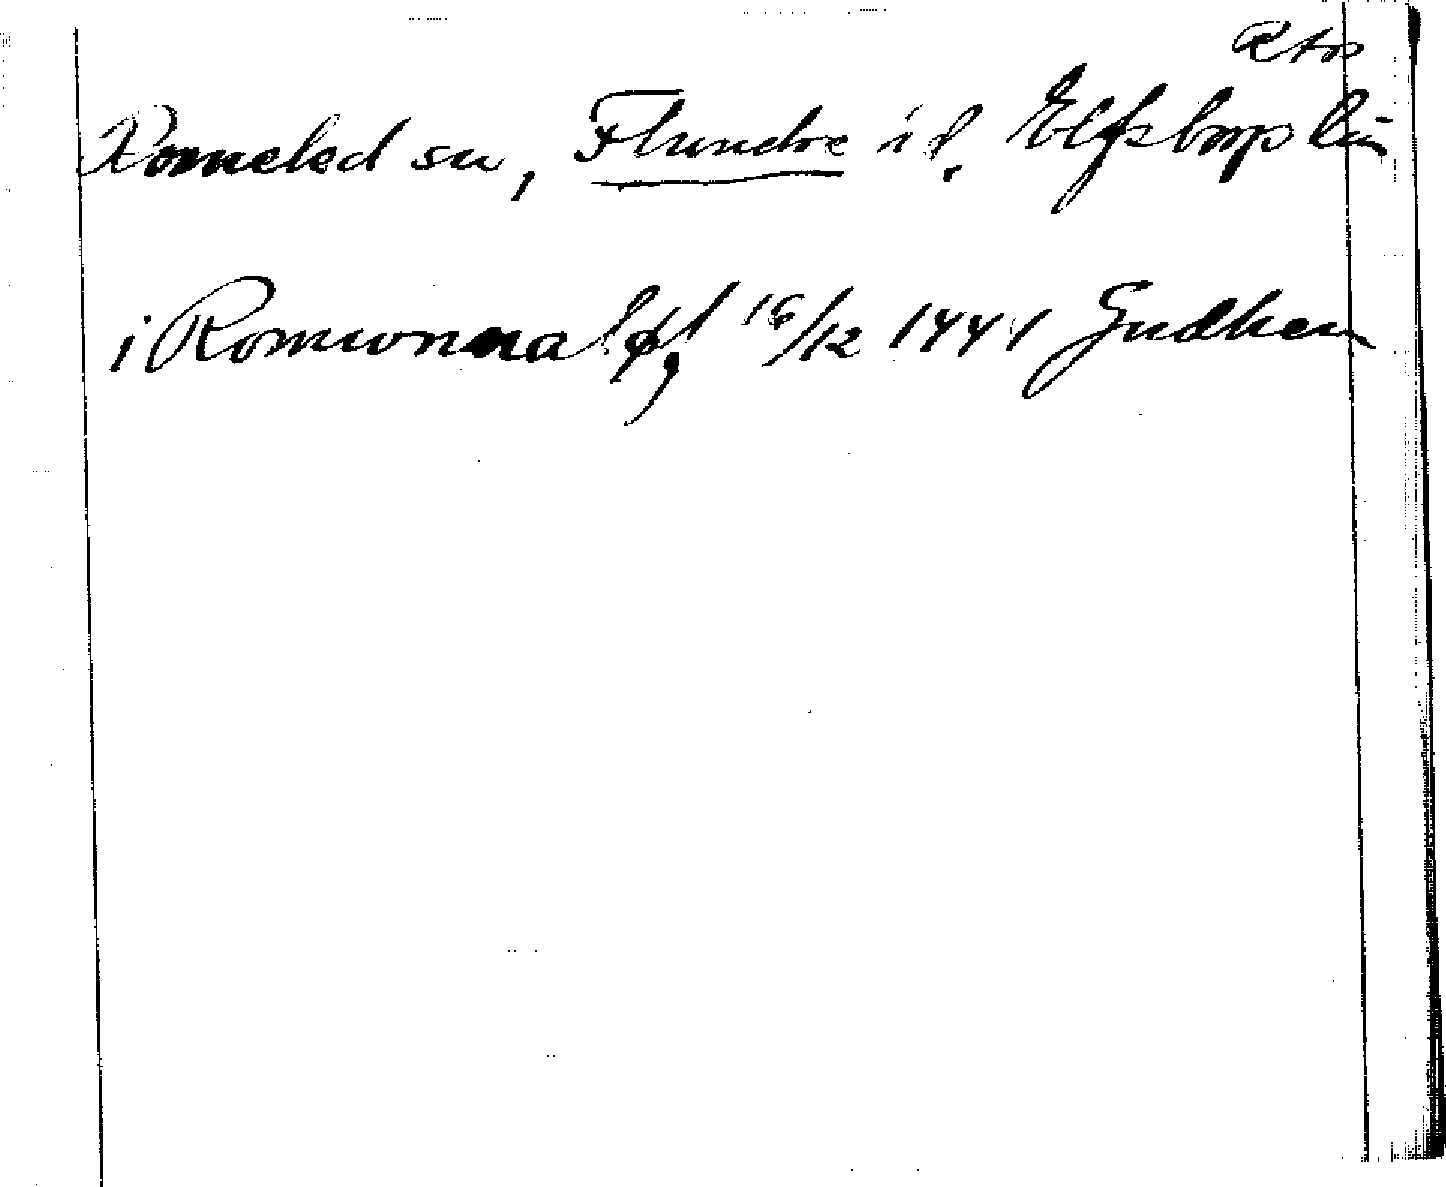 Romeled sn, Flundre hd. Elfsborgs län
i Romwonna 16/12 1441 Gudhem